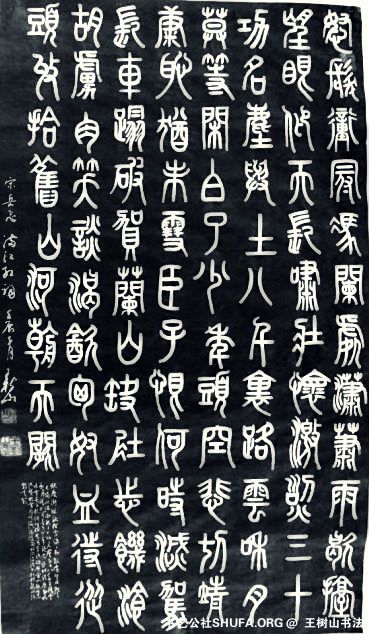 怒髮衝冠馮闌處瀟蕭雨歇擡
望眼仰天長嘯壯懷激烈三十
功名塵與土八千里路雲和月
莫等閑白了少年頭空悲切靖
康恥猶未雪臣子恨何時滅駕
長車蹋破賀蘭山缺壯志饑湌
胡虜肉笑談渴飲匈奴血待從
頭收拾舊山河朝天闕
宋岳飛滿江紅詞
公社SHUFA.ORG @ 王树山书法